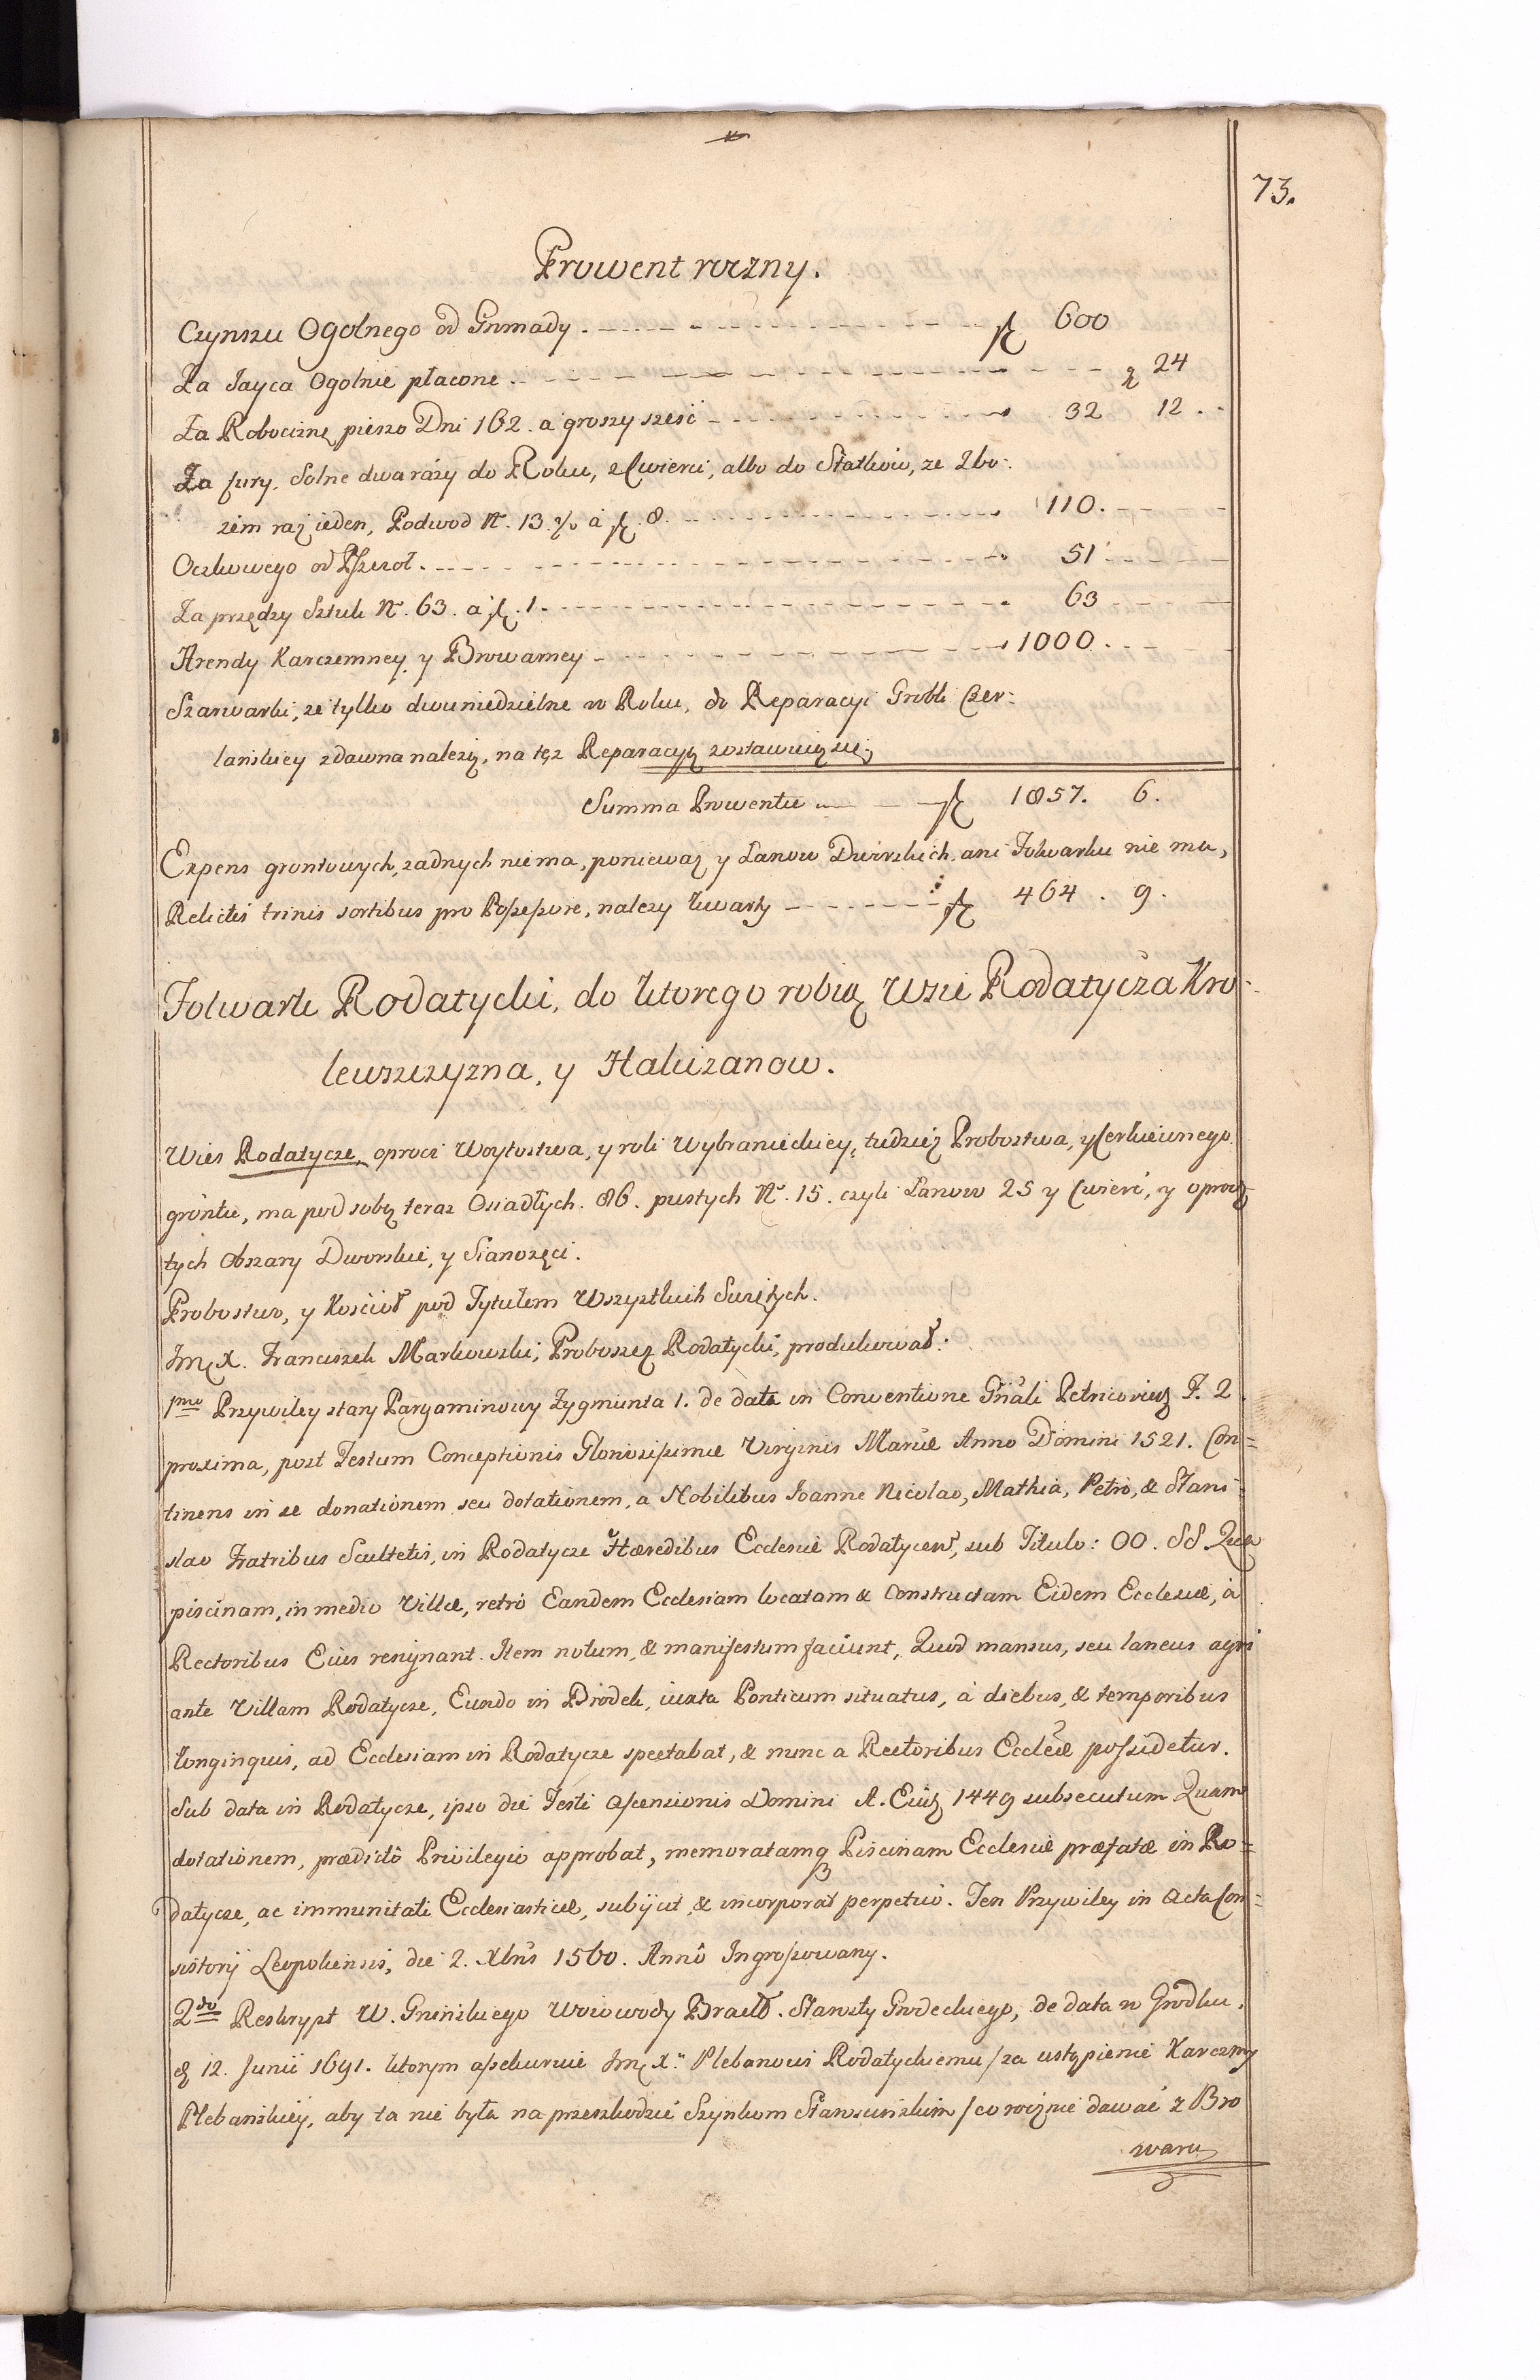 73.
Prowent roczny.
Czynszu Ogolnego od Gromady. fl 600
Za Jayca Ogolnie płacone. g 24
Za Robociznę pieszo Dni 162. a groszy szesć 32 12.
Za fury, Solne dwa rázy do Roku, z Cwierci, albo do Statków, ze Zbo:
zem raz ieden, Podwod N. 13. ¾ á fl. 8. 110.
Oczkowego od Pszczoł. 51
Za przędzy Sztuk N. 63. a fl. 1. 63
Arendy Karczemney y Browarney 1000.
Szarwarki, ze tylko dwuniedzielne w Roku, do Reparacyi Grobli Czer:
lańskiey zdawna nalezą, na tęz Reparacyą zostawuią się.
Summa Prowentu fl 1857. 6.
Expens grontowych, zadnych niema, poniewaz y Łanow Dworskich, ani Folwarku nie ma,
Relictis trinis sortibus pro Possessore, nalezy kwarty fl 464. 9.
Folwark Rodatycki, do ktorego robią Wsie Rodatycza Kro:
lewszczyzna, y Haliczanow.
Wies Rodatycze, oprocz Woytostwa, y roli Wybranieckiey, tudziez Probostwa, y Cerkiewnego
gróntu, ma pod sobą teraz Osiadłych. 86. pustych N. 15. czyli Łanow 25 y Cwierć, y oprocz
tych Obszary Dworskie, y Sianozęci.
Probostwo, y Kosciół pod Tytułem Wszystkich Swiętych.
Jmć X. Franciszek Markowski, Proboszcz Rodatycki, produkował:
1mo Przywiley stary Pargaminowy Zygmunta 1. de data in Conventione Gnãli Petricoviez F. 2
proxima, post Festum Conceptionis Gloriosissimæ Virginis Mariæ Anno Domini 1521. Con=
tinens in se donationem seu dotationem, a Nobilibus Joanne Nicolao, Mathia, Petro, & Stani:
slao Fratribus Scultetis, in Rodatycze Hæredibus Ecclesiæ Rodatycen, sub Titulo: OO. SS. Quia
piscinam, in medio Villæ, retro Eandem Ecclesiam locatam & constructam Eidem Ecclesiæ, à
Rectoribus Eius resignant. Item notum, & manifestum faciunt, Quod mansus, seu laneus agri
ante Villam Rodatycze, Eundo in Grodek, iuxta Ponticum situatus, à diebus, & temporibus
longinquis, ad Ecclesiam in Rodatycze spectabat, & nunc a Rectoribus Eccleæ possidetur.
Sub data in Rodatycze, ipso die Festi Ascensionis Domini A. Eiusd 1449 subsecutum Quam
dotationem, prædictô Privilegio approbat, memoratamq Piscinam Ecclesiæ præfatæ in Ro=
datycze, ac immunitati Ecclesiasticæ, subijcit, & incorporat perpetuò. Ten Przywiley in Acta Con=
sistorij Leopoliensis, die 2. Xbris 1560. Annô Ingrossowany.
2do Reskrypt W. Gninskiego Woiewody Bracłł. Starosty Grodeckiego, de data w Grodku,
12. Junii 1691. ktorym assekuruie Jmć X. Plebanowi Rodatyckiemu /za ustąpienie Karczmy
Plebańskiey, aby ta nie była na przeszkodzie Szynkom Starościńskim/ co rocznie dawać z Bro
waru